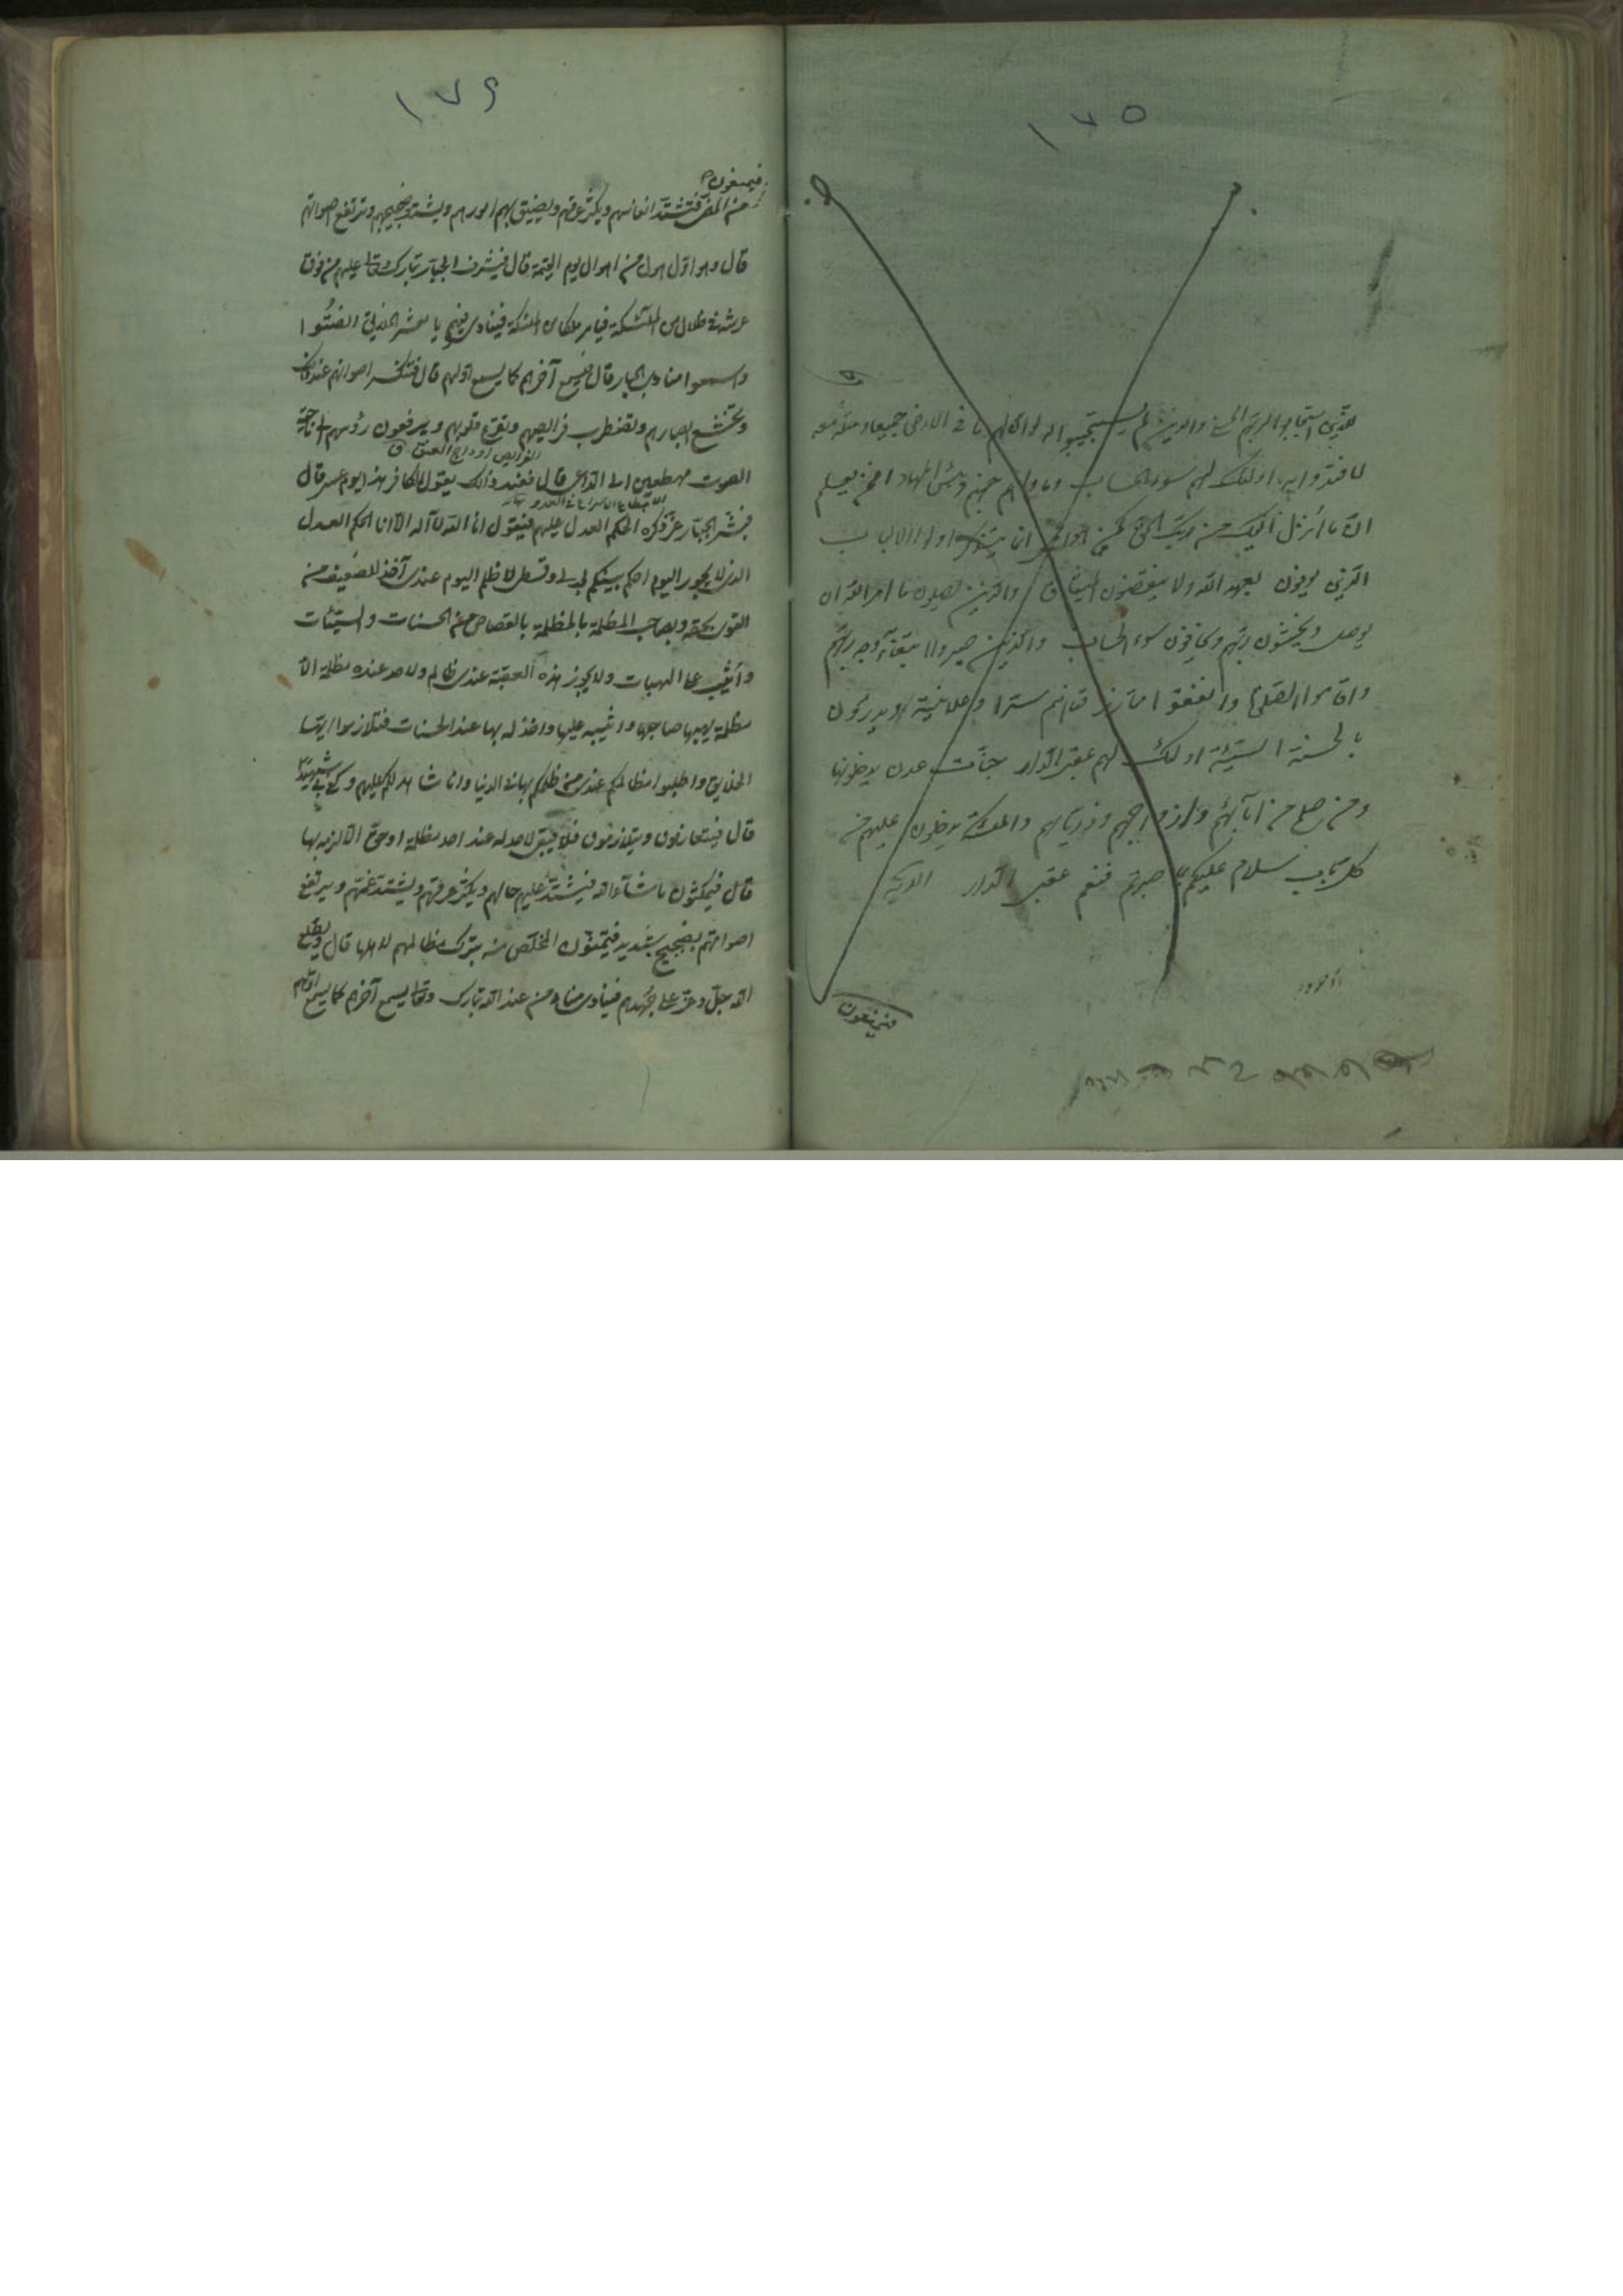 ١٧٥
للذين استجابوا لربهم الحسنى والذين لم يستجيبوا له لو ان لهم ما فى الارض جميعا ومثله معه
لافتدوا به اولئك لهم سوء الحساب وماواهم جهنم وبئس المهاد افمن يعلم
ان ما انزل اليك من ربك الحق كمن هو اعمى انما يتذكر اولوا الالباب
الذين يوفون بعهد الله ولا ينقضون الميثاق والذين يصلون ما امر الله ان
يوصل ويخشون ربهم ويخافون سوء الحساب والذين صبروا ابتغآء وجه ربهم
واقاموا الصلوة وانفقوا مما رزقناهم سرا وعلانية ويدرؤن
بالحسنة السيئة اولئك لهم عقبى الدار جنات عدن يدخلونها
ومن صلح من ابآئهم وازواجهم وذرياتهم والملئكة يدخلون عليهم من
كل باب سلام عليكم بما صبرتم فنعم عقبى الدار الآية
فيمنعون
١٧٦
فيمنعون
من المضى فتشتد انفاسهم ويكثر عرقهم ويضيق بهم امورهم ويشتد ضجيجهم وترتفع اصواتهم
قال وهو اول هول من اهوال يوم القيمة قال فيشرف الجبار تبارك وتعالى عليهم من فوق
عرشه فى ظلال من الملئكة فيامر ملكا من الملئكة فينادى فيهم يا معشر الخلائق انصتوا
واسمعوا منادى الجبار قال فيسمع آخرهم كما يسمع اولهم قال فتنكسر اصواتهم عند ذلك
وتخشع ابصارهم وتضطرب فرائصهم وتفزع قلوبهم ويرفعون رؤسهم الى ناحية
الفرايص اوداج العنق ق
الصوت مهطعين الى الداعى قال فعند ذلك يقول الكافر هذا يوم عسر قال
الاهطاع الاسراع فى العدو
فيشرف الجبار عز ذكره الحكم العدل عليهم فيقول انا الله لا آله الا انا الحكم العدل
الذى لا يجور اليوم احكم بينكم بعدلى وقسطى لا يظلم اليوم عندى احد آخذ للضعيف من
القوى بحقه ولصاحب المظلمة بالمظلمة بالقصاص من الحسنات والسيئات
واثيب على الهبات ولا يجوز هذه العقبة عندى ظالم ولاحد عنده مظلمة الا
مظلمة يهبها صاحبها واثيبه عليها وآخذ له بها عند الحساب فتلازموا ايها
الخلايق واطلبوا مظالمكم عند من ظلمكم بها فى الدنيا وانا شاهد لكم عليهم وكفى بى شهيدا
قال فيتعارفون ويتلازمون فلا يبقى لاحد له عند احد مظلمة او حق الا لزمه بها
قال فيمكثون ما شآء الله فيشتد عليهم حالهم ويكثر عرقهم ويشتد غمهم ويرتفع
اصواتهم بضجيج شديد فيتمنون المخلص منه بترك مظالمهم لاهلها قال ويطلع
الله جل وعز على جهدهم فينادى مناد من عند الله تبارك وتعالى يسمع آخرهم كما يسمع اولهم